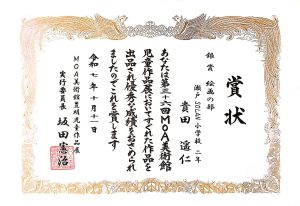 賞状
銀賞 絵画の部
瀬戸SOLAN小学校 三年
貴田 遥仁
あなたは第三十六回MOA美術館
児童作品展においてすぐれた作品を
出品され優秀な成績をおさめられ
ましたのでこれを賞します
令和七年十月十一日
MOA美術館豊明児童作品展
実行委員長 坂田憲治